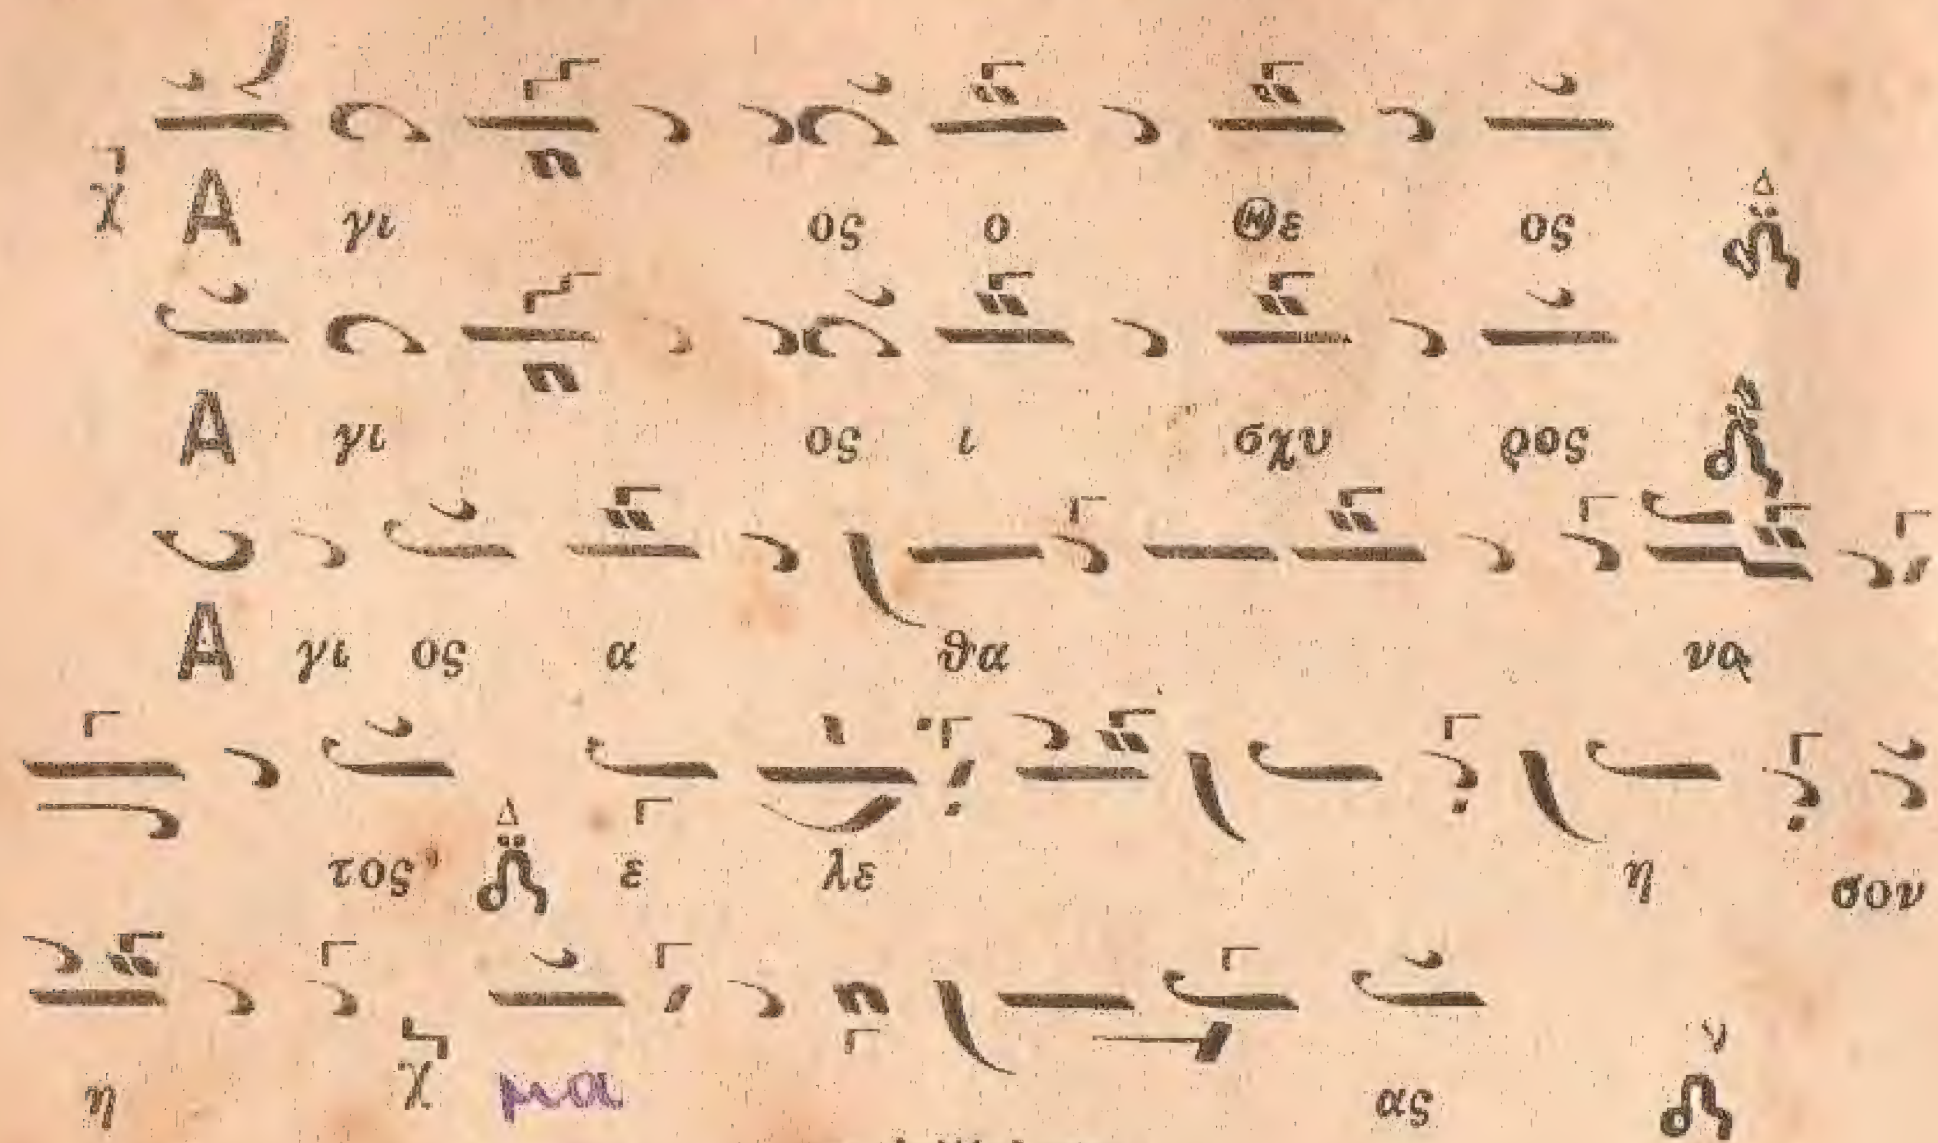 χ Α γι ος ο Θε ος Δ
Α γι ος ι σχυ ρος
Α γι ος α θα να
τος Δ ε λε η σον
η χ μα ας ν